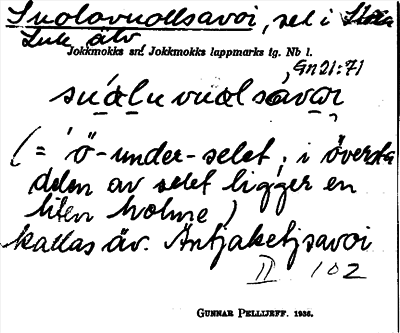 Suolovuollsavoi, sel i Stora
Lule älv
Jokkmokks sn. Jokkmokks lappmarks tg. Nb l.
Gn 21:71
suáluvuolsavoi
(= 'ö-under-selet; i översta
delen av selet ligger en
liten holme)
kallas äv. Antjaketjsavoi
II 102
GUNNAR PELLIJEFF. 1936.